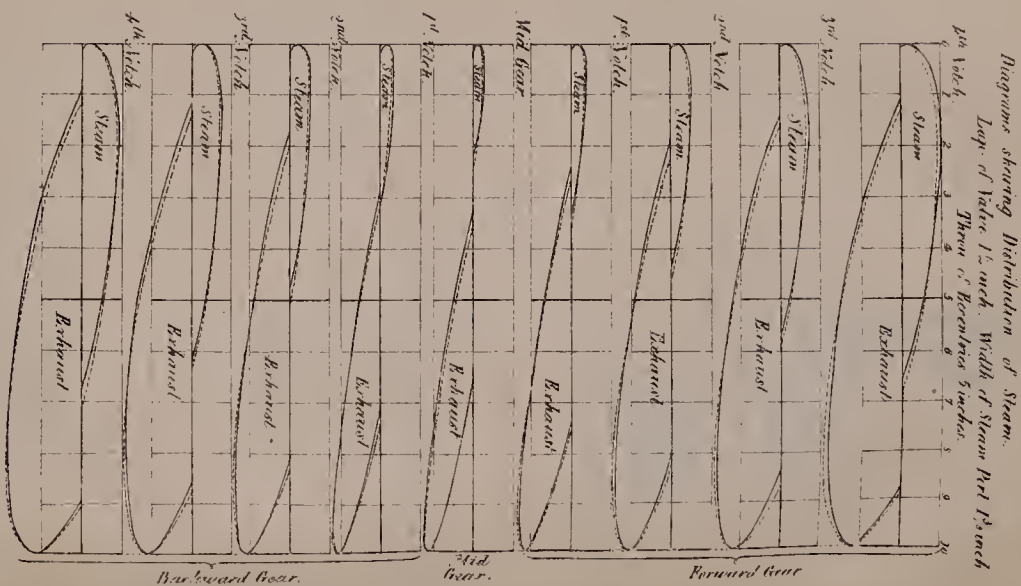 Diagrams shewing Distribution of Steam.
Lap of Valve 1½ inch. Width of Steam Port 1⅞ inch
Throw of Eccentrics 5 inches.
0 1 2 3 4 5 6 7 8 9 10
4th Notch.
Steam
Exhaust
3rd Notch
Steam
Exhaust
2nd Notch
Steam
Exhaust
1st Notch
Steam
Exhaust
Mid Gear
Steam
Exhaust
1st Notch.
Steam
Exhaust
2nd Notch.
Steam
Exhaust
3rd Notch
Steam
Exhaust
4th Notch
Steam
Exhaust
Forward Gear
Mid
Gear.
Backward Gear.